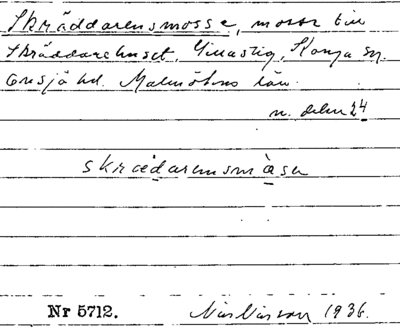 Skräddarensmosse, mosse till
Skräddarehuset, Konga sn.
Onsjö hd. Malmöhus län.
n. delen 24
skrædarensmåsen
Nr 5712.
Nils Nilsson 1936.